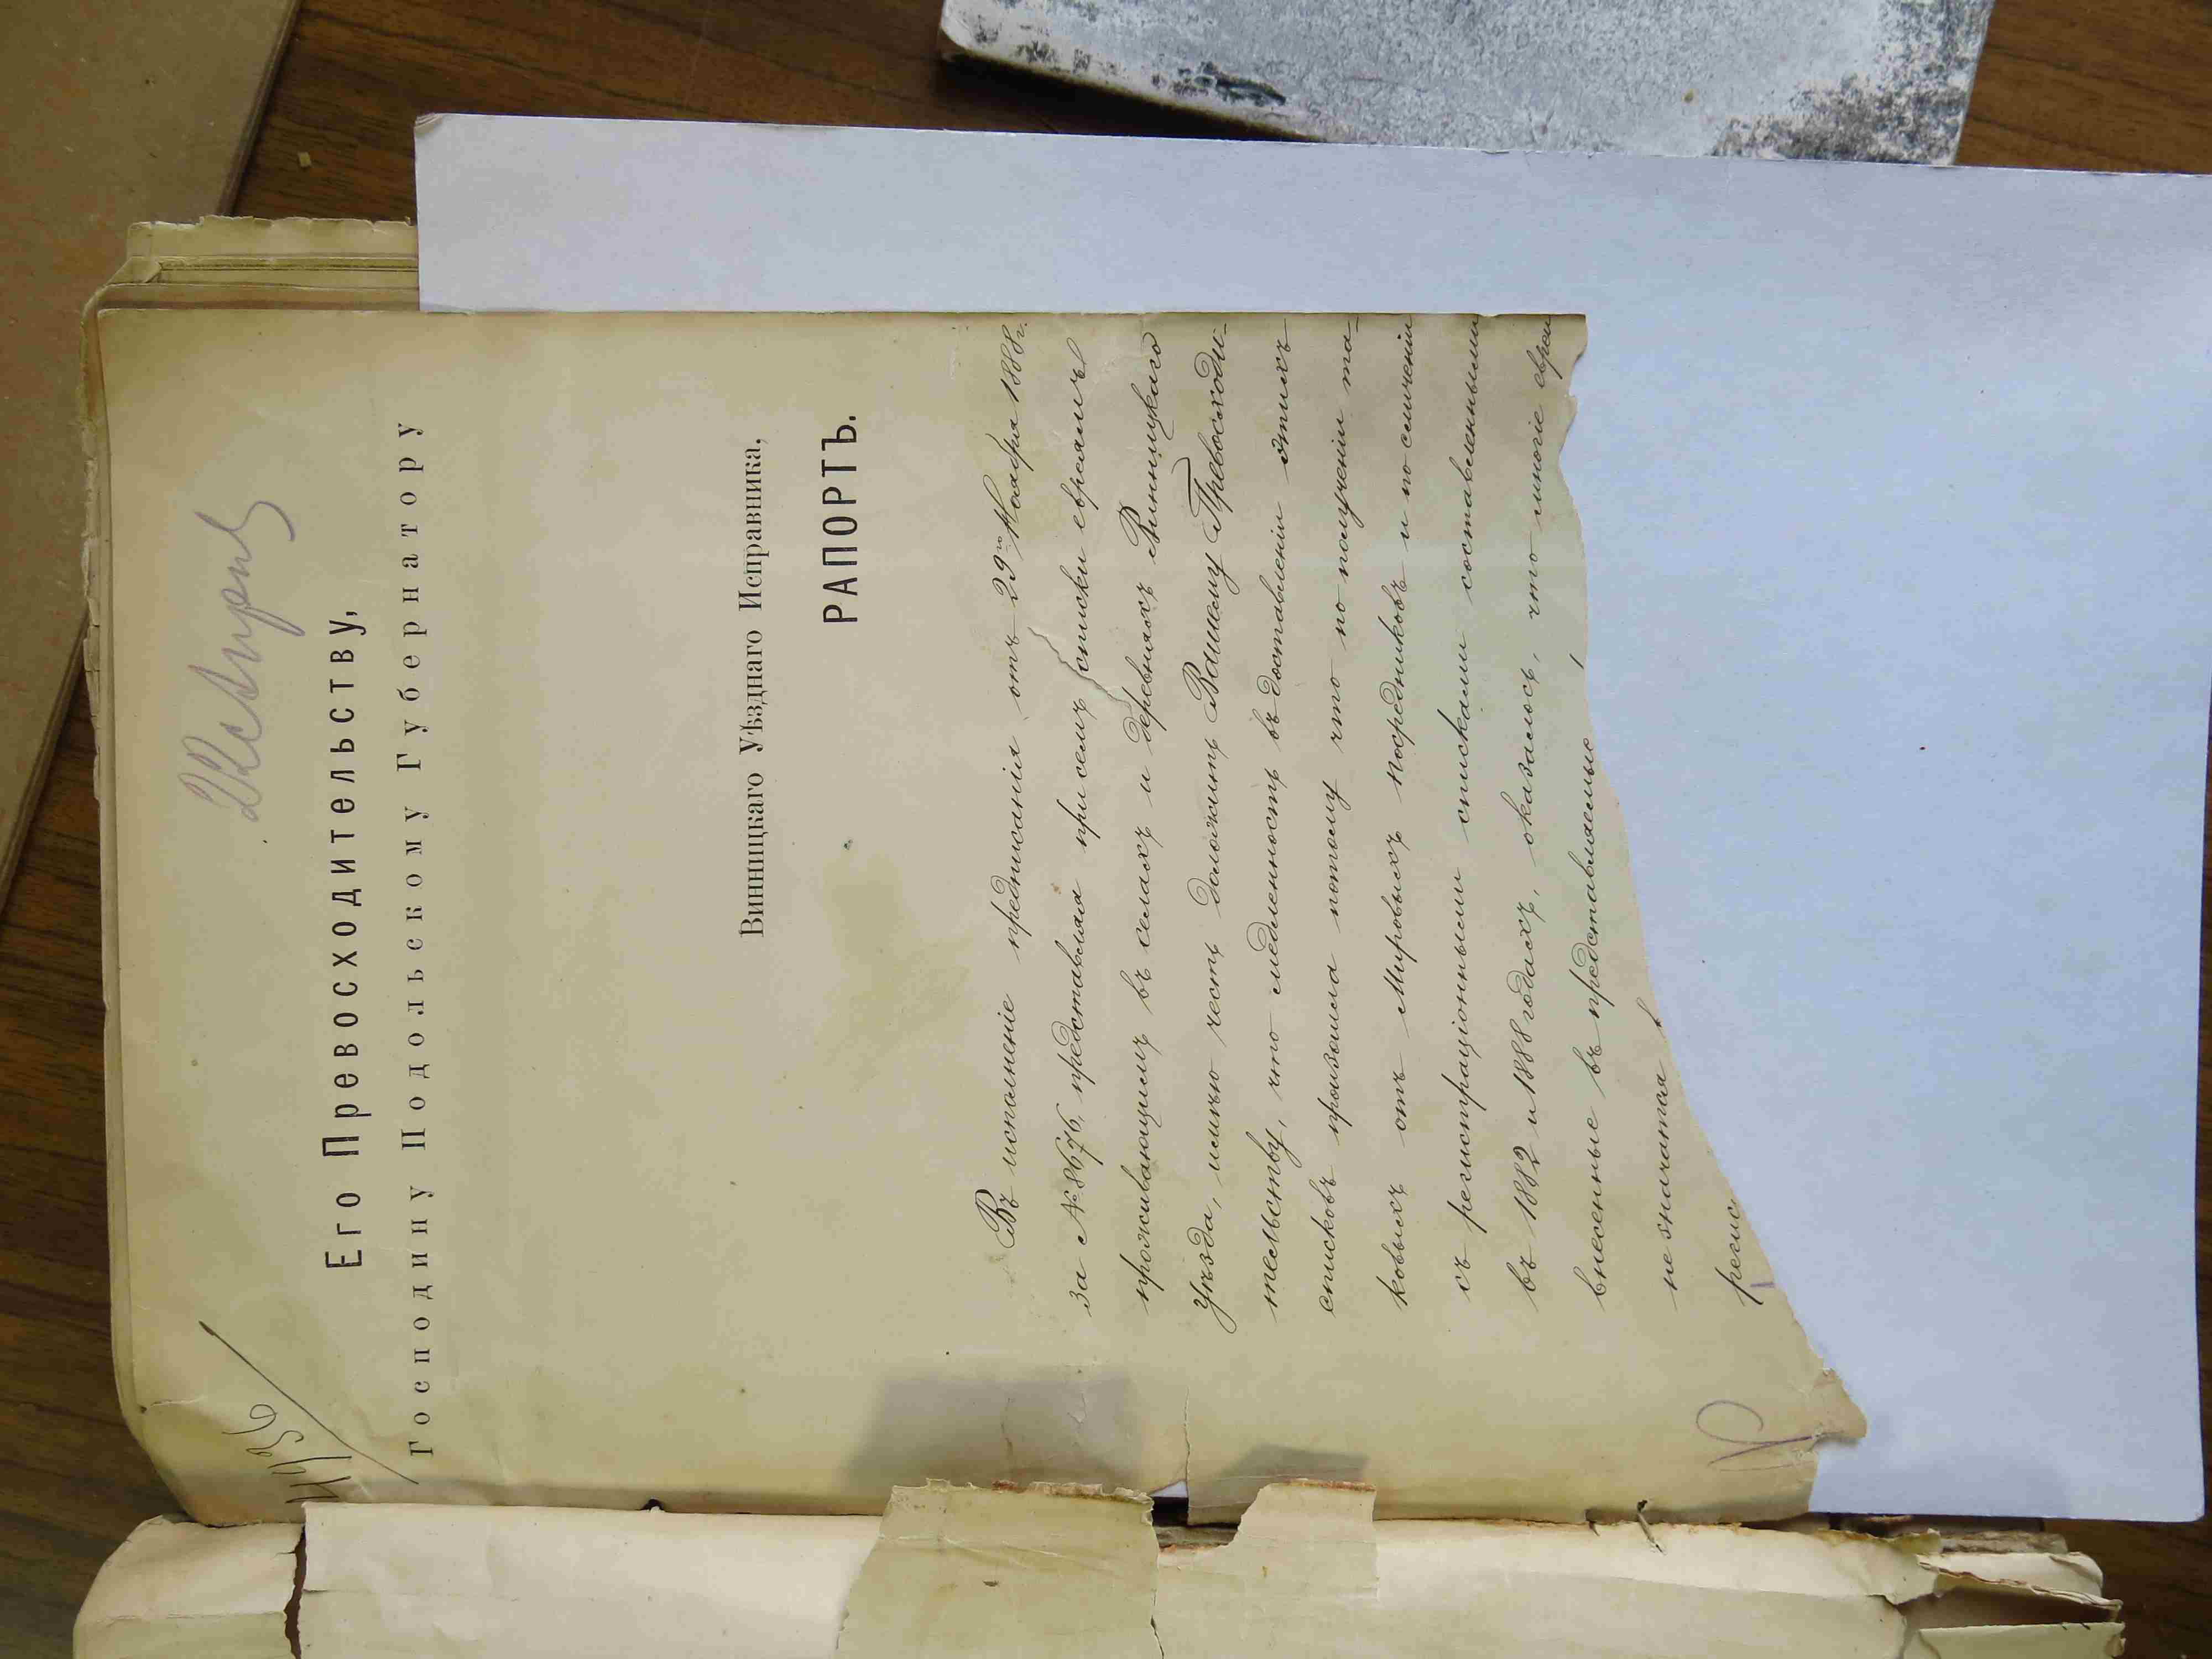 4936
Его Превосходительству,
Господину Подольскому Губернатору
Винницкаго Уѣзднаго Исправника,
РАПОРТЪ.
Въ исполненіе предписанія отъ 29го Ноября 1888 г.
за № 8676, представляя при семъ списки евреямъ
проживающимъ въ селахъ и деревняхъ Винницкаго
уѣзда, имѣю честь доложить Вашему Превосходи-
тельству, что медленность въ доставленіи этихъ
списковъ произошла потому что по полученіи та-
ковыхъ отъ Мировыхъ посредниковъ и по сличеніи
съ регистраціонными списками составленными
въ 1882 и 1888 годахъ, оказалось, что многіе евреи
внесенные въ представляемые
не значатся
регис